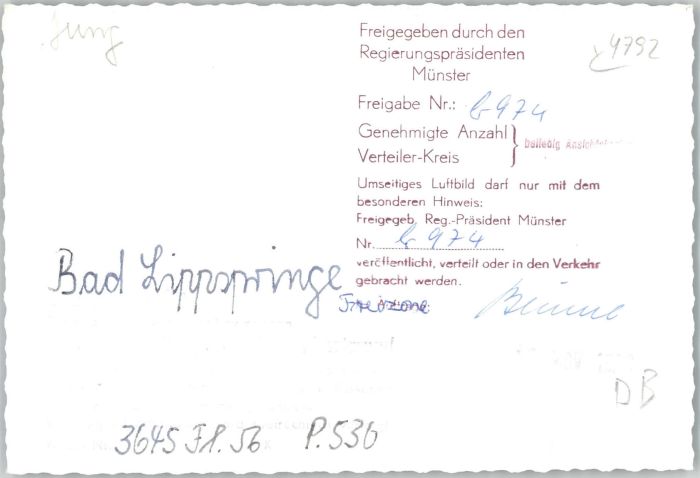 Jung
Freigegeben durch den
Regierungspräsidenten
Münster
4792
Freigabe Nr.: b 974
Genehmigte Anzahl
Verteiler-Kreis
beliebig
Umseitiges Luftbild darf nur mit dem
besonderen Hinweis:
Freigegeb. Reg.-Präsident Münster
Nr. b 974
veröffentlicht, verteilt oder in den Verkehr
gebracht werden.
Bad Lippspringe
DB
3645 P.536